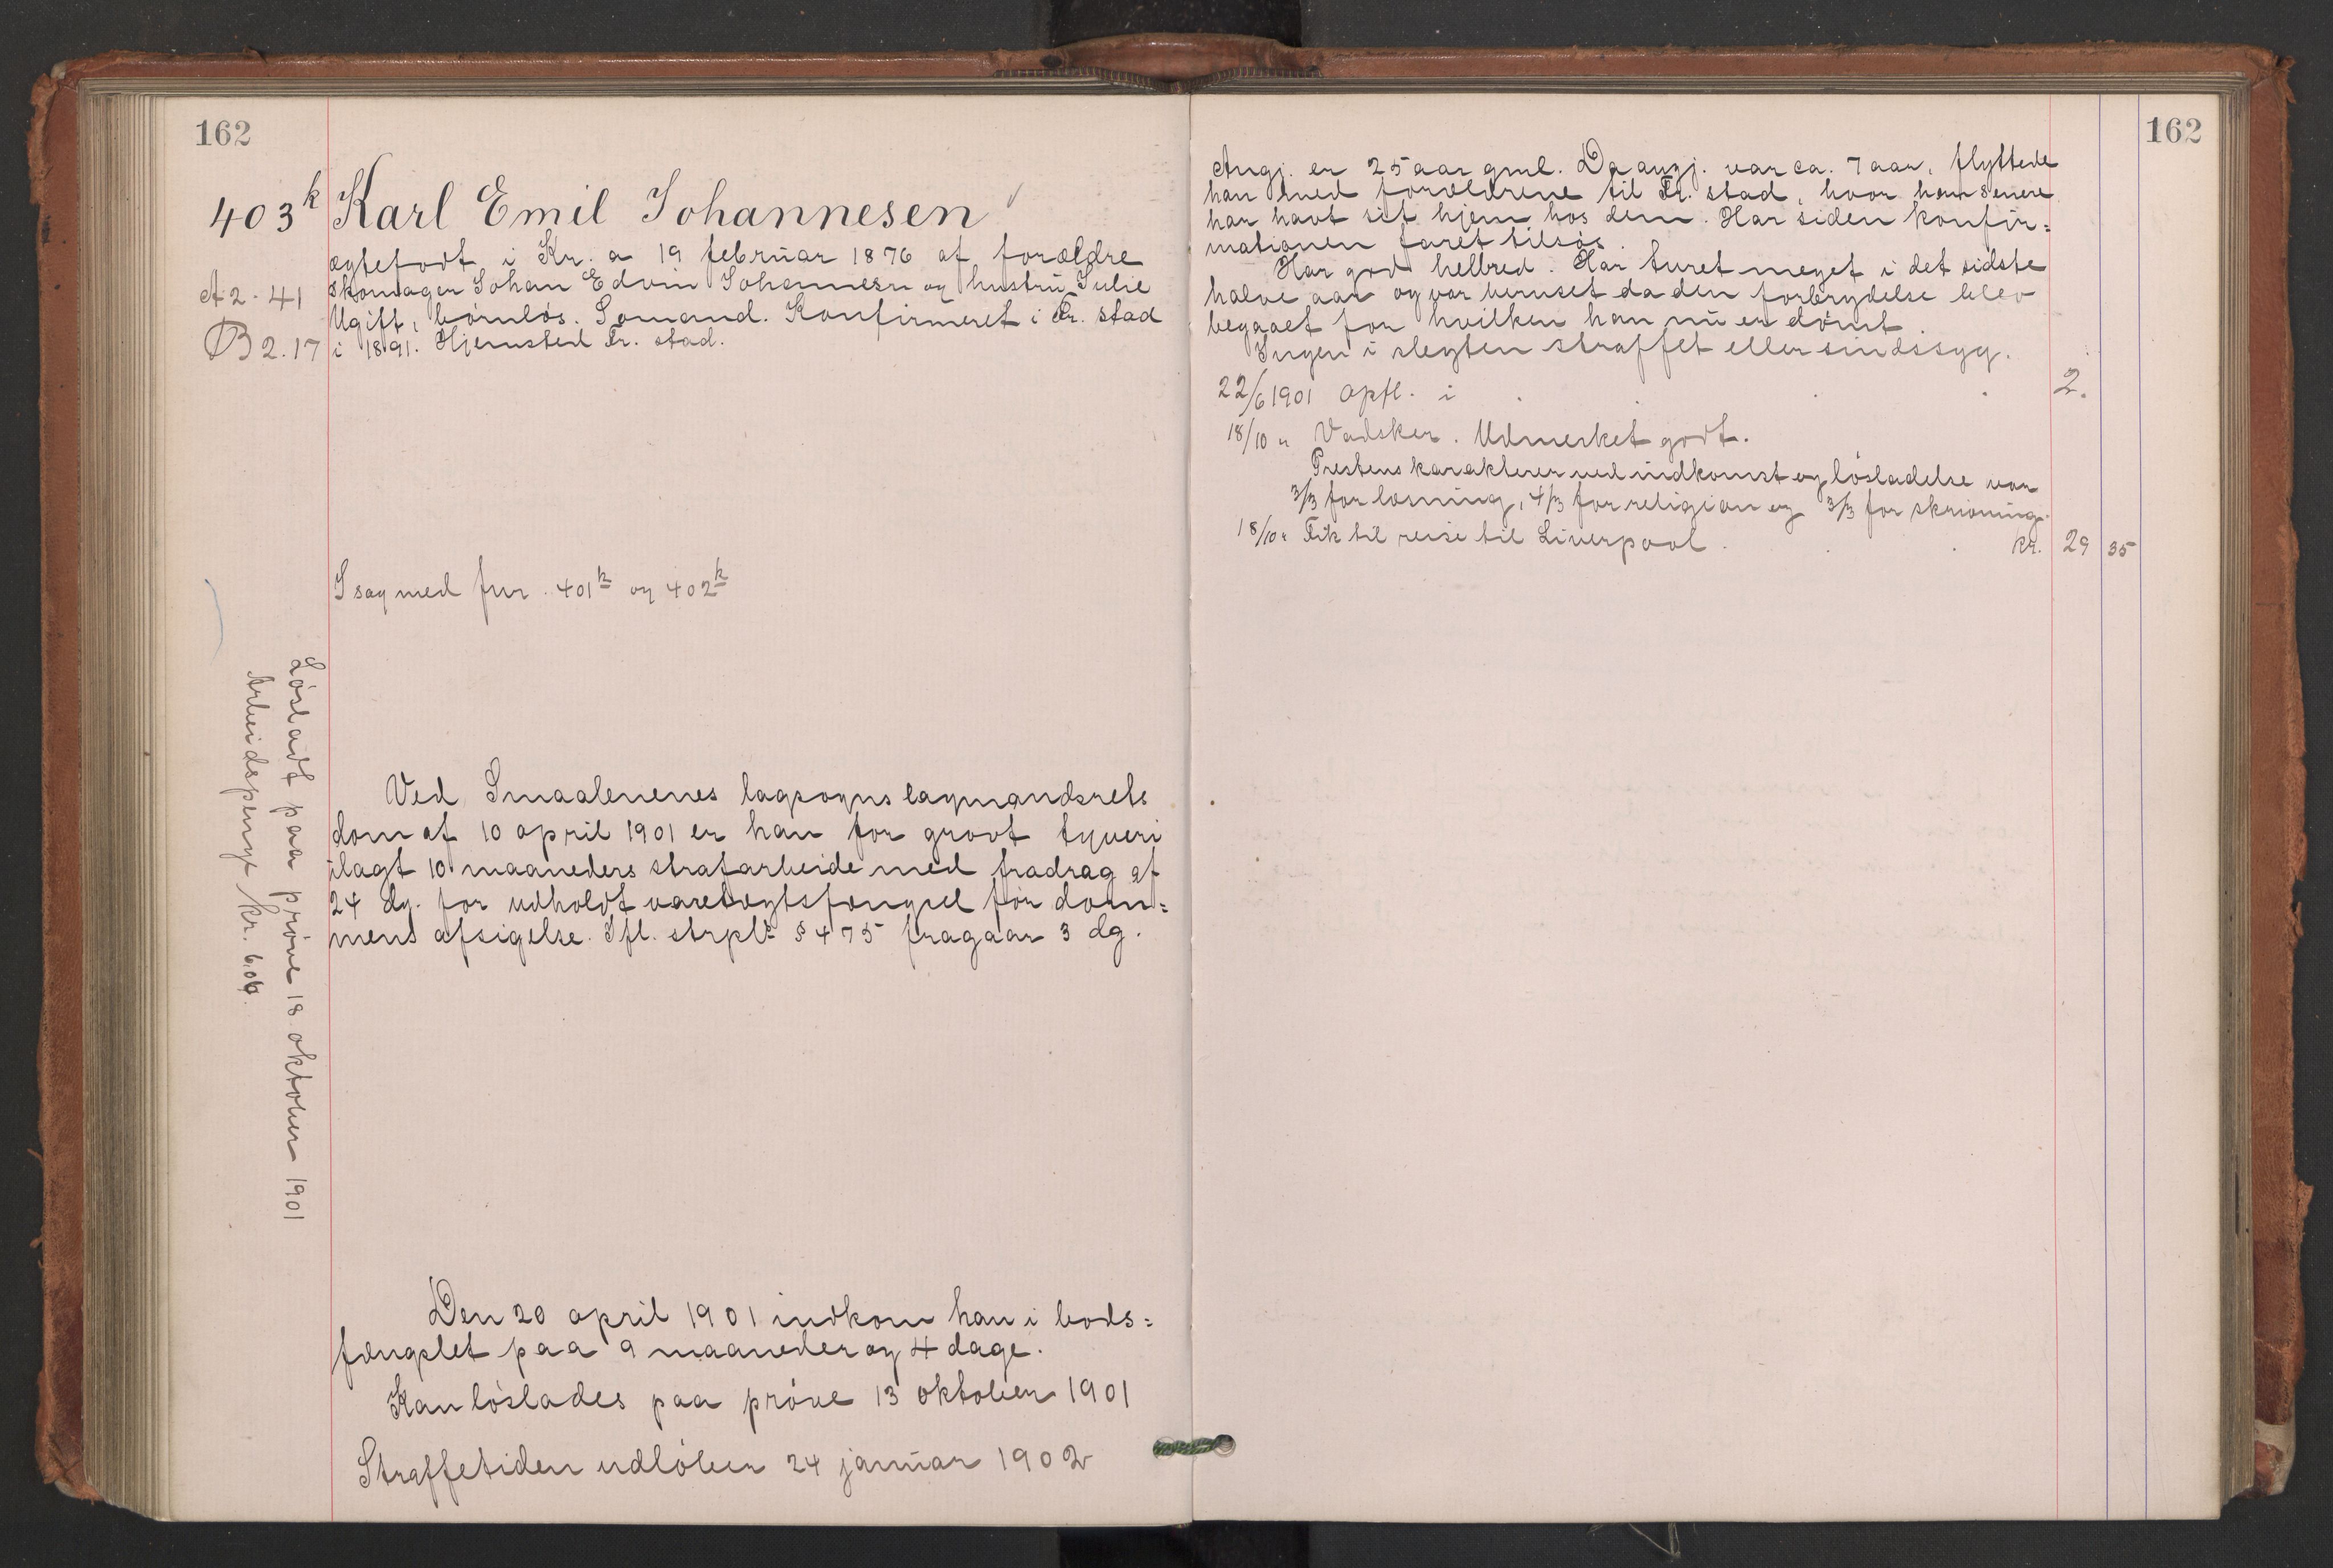 162
403k Karl Emil Johannesen
ægtefødt i Kr.a 19 februar 1876 af forældre
A 2 - 41 skomager Johan Edvin Johannesen og hustru Julie
Ugift, børnløs. Sømand. Konfirmeret i Fr. stad
B 2. 17 i 1891. Hjemsted Fr. stad.
I sag med fnr. 401k og 402k
Løsladt paa prøve 18 oktober 1901
Arbeidspenge kr. 6,06.
Ved Smaalenenes lagsogns lagmandsrets
dom af 10 april 1901 er han for grovt tyveri
ilagt 10 maaneders strafarbeide med fradrag af
24 dg. for udholdt varetægtsfængsel før dom=
mens afsigelse. Ifl. strpl. § 475 fragaar 3 dg.
Den 20 april 1901 indkom han i bods=
fængslet paa 9 maaneder og 4 dage.
Kan løslades paa prøve 13 oktober 1901
Straffetiden udløber 24 januar 1902
162
Angj. er 25 aar gml. Da angj. var ca. 7 aar, flyttede
han med forældrene til Fr. stad, hvor han senere
har havt sit hjem hos dem. Har siden konfir=
mationen faret tilsøs.
Har god helbred. Har turet meget i det sidste
halve aar og var beruset da den forbrydelse blev
begaaet for hvilken han nu er dømt.
Ingen i slegten straffet eller sindssyg.
22/6 1901 Opfl. i . . . 2.
18/10 " Vadsker. Udmerket godt.
Prestens karakterer ved indkomst og løsladelse var
3/3 for læsning, 4/3 for religion og 3/3 for skrivning.
18/10 " Fik til reise til Liverpool . . . kr. 29 35